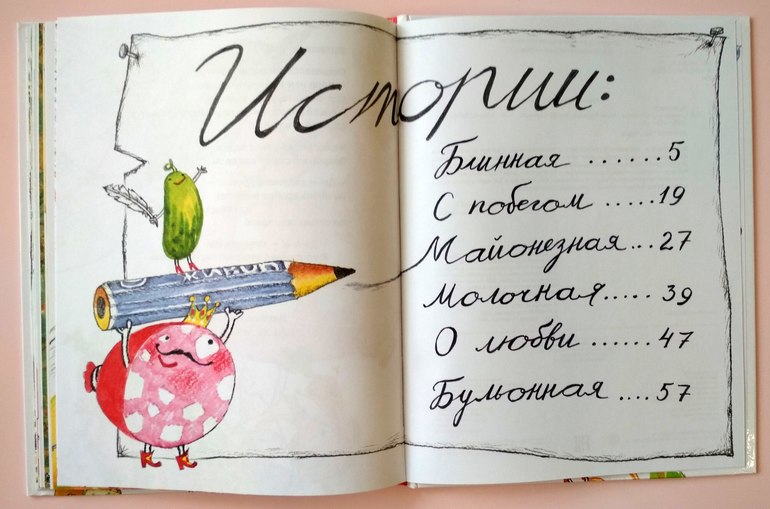 Истории:
Блинная ......5
С побегом .....19
Майонезная...27
Молочная..... 39
О любви .....47
Бульонная ....57